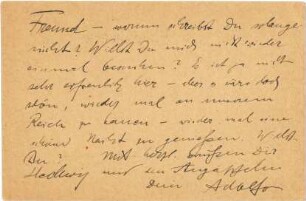 Freund – warum schreibst Du solange
nicht? Willst Du mich nicht wieder
einmal besuchen? Es ist ja nicht
sehr hier – aber es wäre doch
schön, wieder mal an unserem
Reich zu bauen – wieder mal eine
schöne Nacht zu geniessen. Willst
Du? Mit herzl. Grüssen Dir
Hedwig und den
dein Adolf